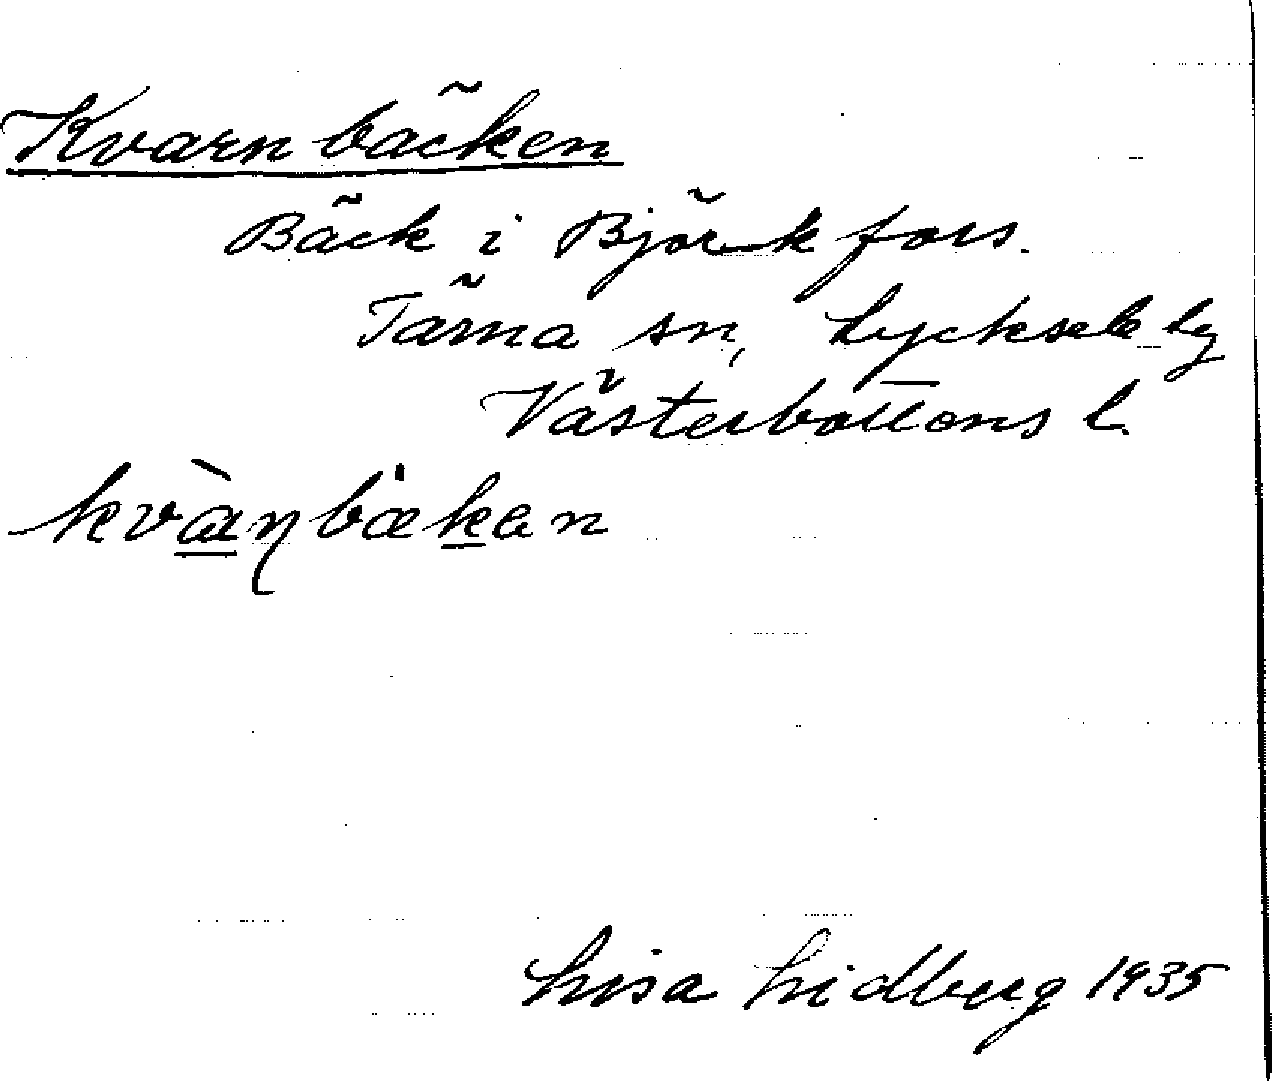 Kvarnbäcken
Bäck i Björkfors.
Tärna sn, Lycksele lg
Västerbottens l.
kvàɳbækan
Lisa Lidberg 1935